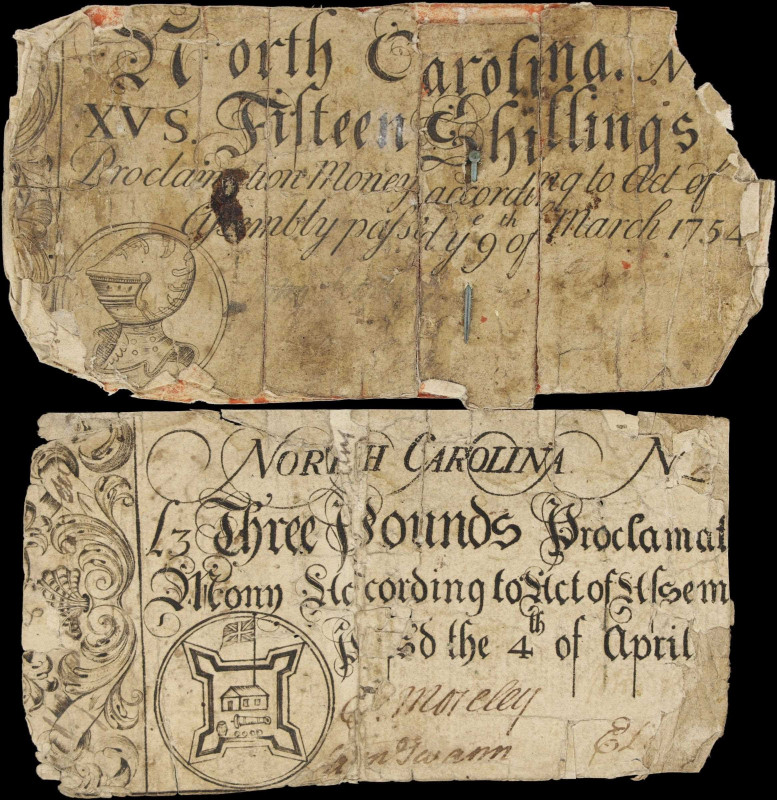 North Carolina. N
XVS. Fifteen Shillings
Proclamation Money according to Act of
Assembly pass'd ye 9th of March 1754
NORTH CAROLINA N
£3 Three Pounds Proclamat
Mony According to Act of Assem
Pass'd the 4th of April
Moreley
Swann